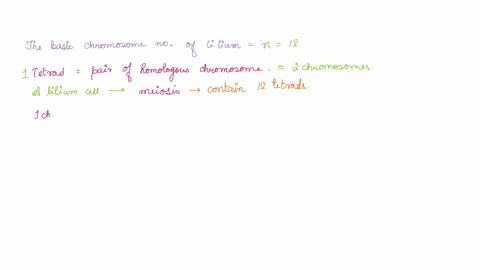 The basic chromosome no. of lilium = n = 12.
1 Tetrad = pair of homologous chromosome. = 2 chromosomes.
A lilium cell → meiosis → contain 12 tetrads.
1 ch